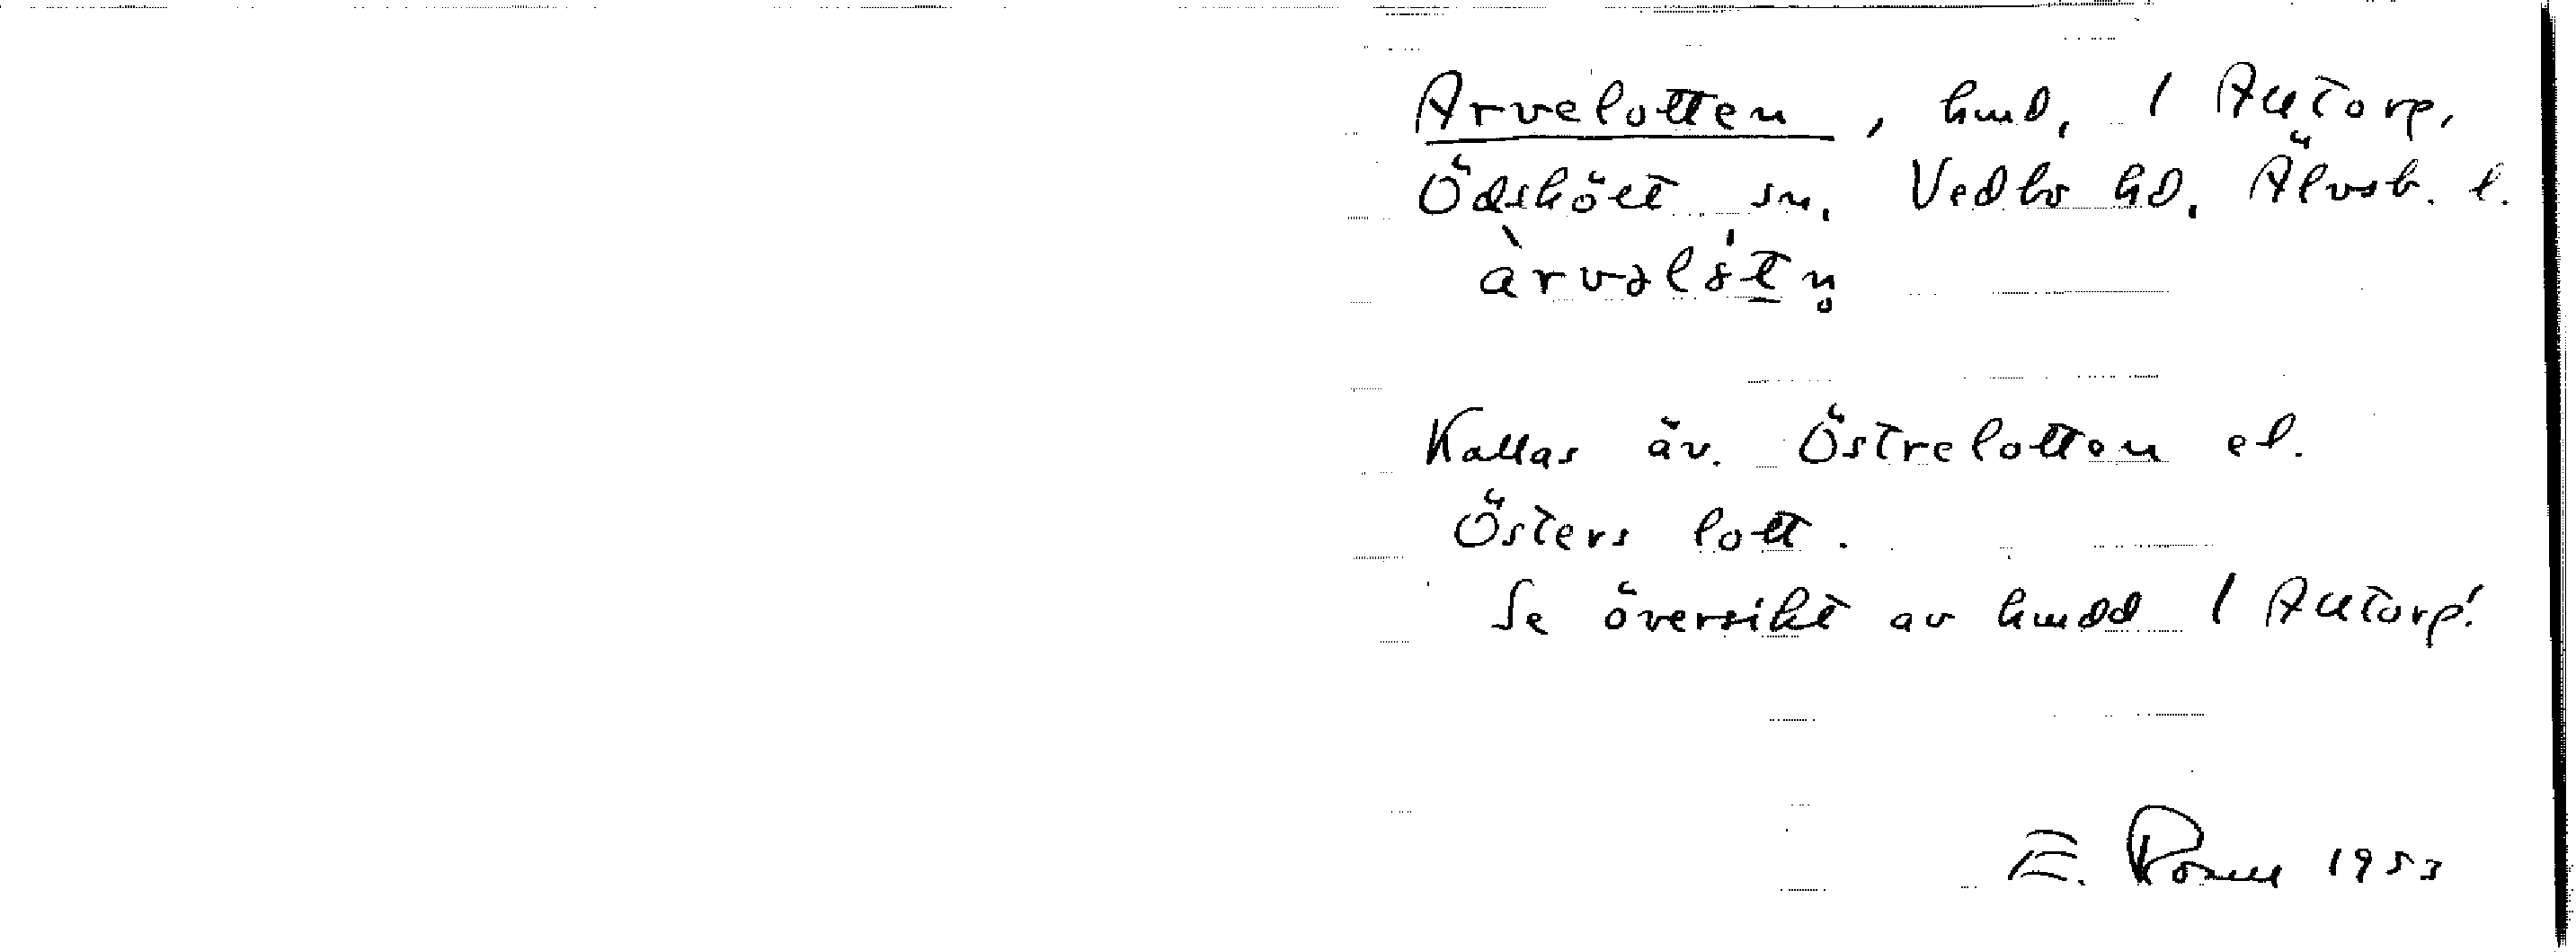 Arvelotten, hmd, 1 Attorp,
Ödskölt sn, Vedbo hd, Älvsb. l.
àrvəlótn̥
Kallas äv. Östrelotten el.
Östers lott.
Se översikt av hmdd 1 Attorp!
E. 1953